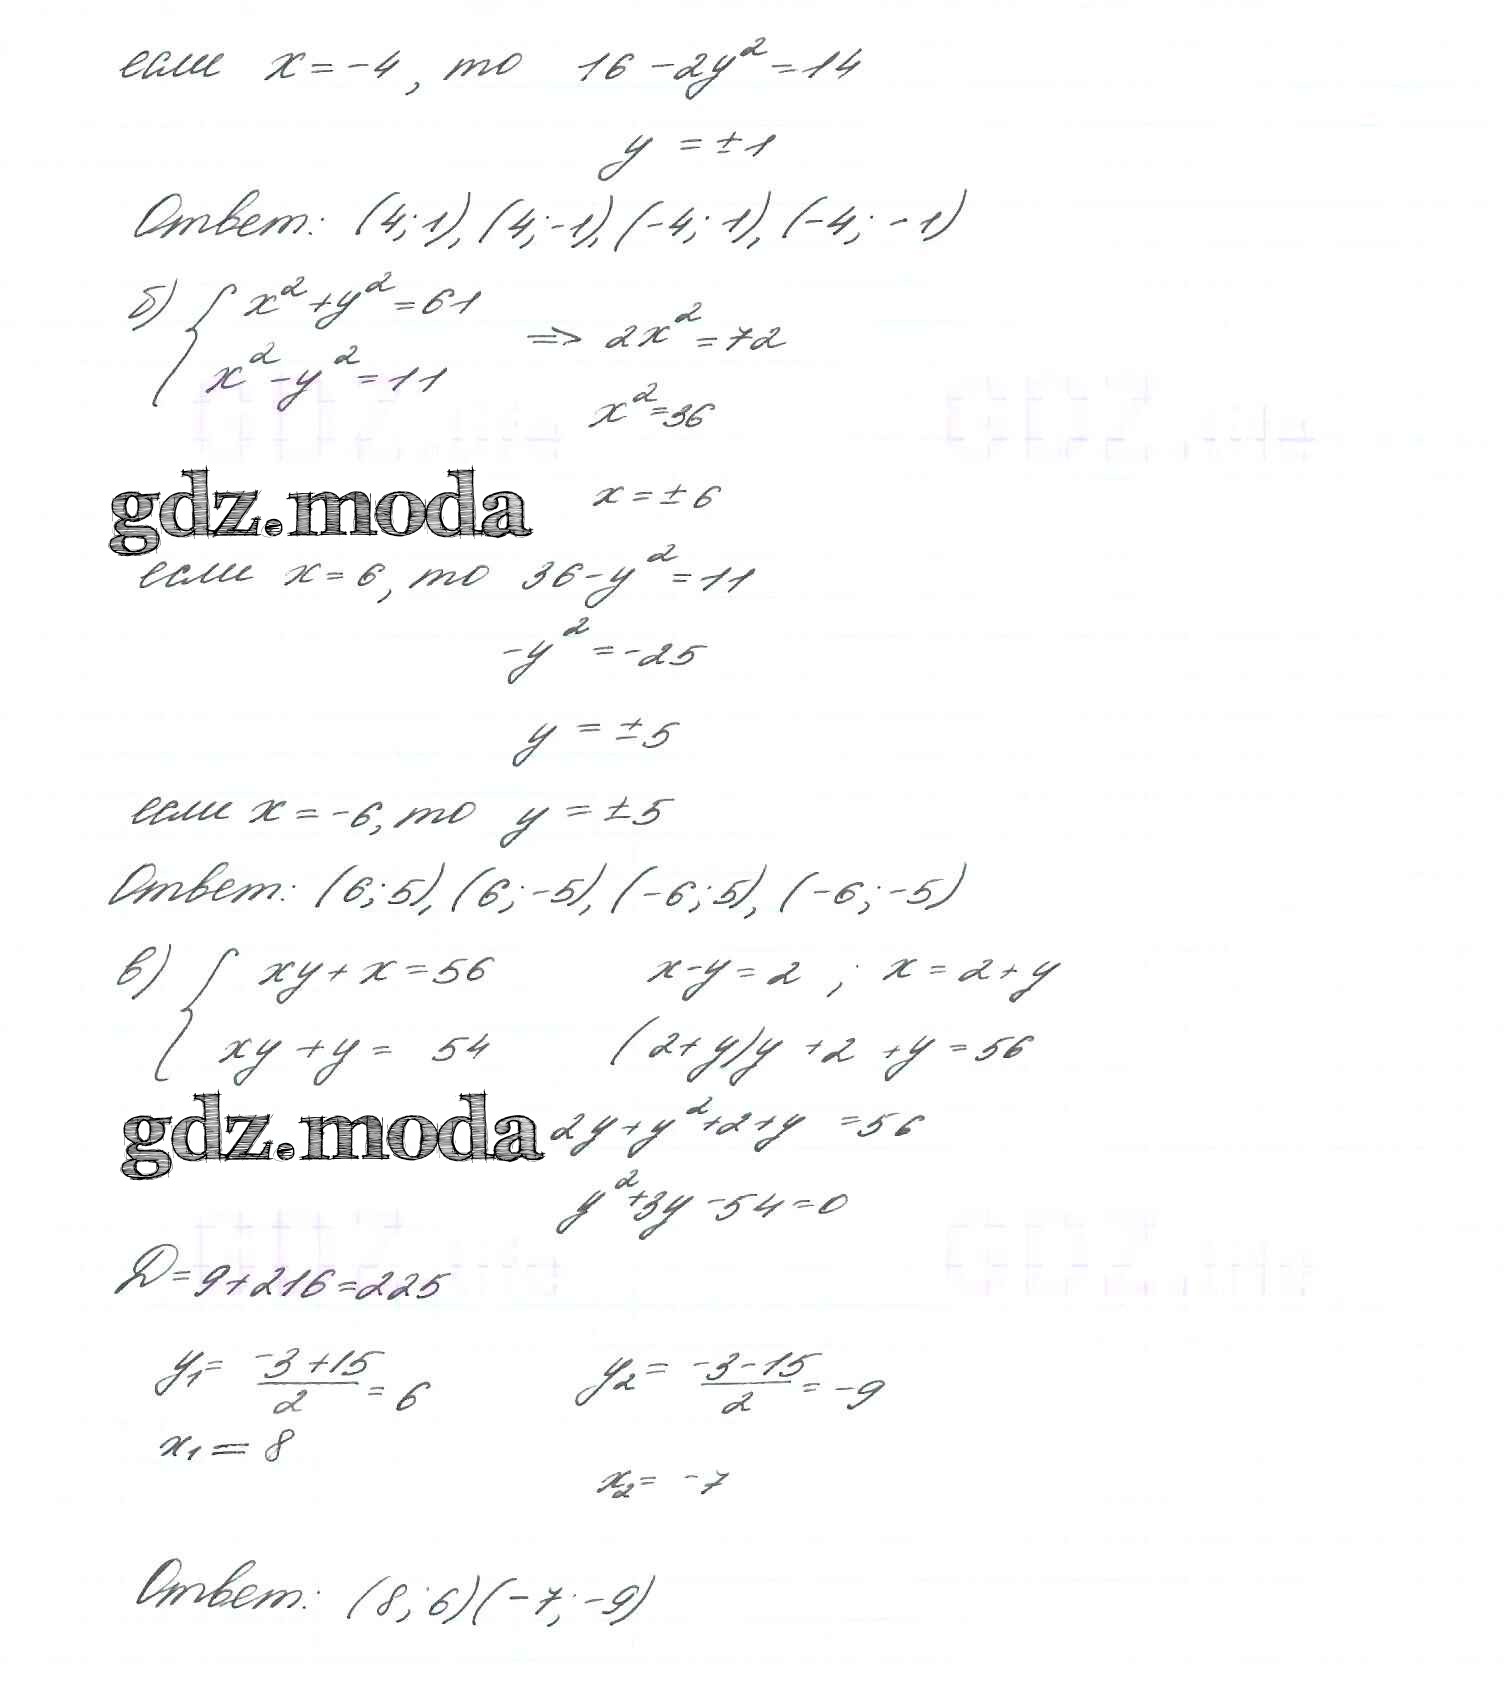 если x = -4, то 16 - 2y² = 14
y = ±1
Ответ: (4; 1), (4; -1), (-4; 1), (-4; -1)
б) { x² + y² = 61
x² - y² = 11
=> 2x² = 72
x² = 36
gdz.moda
x = ±6
если x = 6, то 36 - y² = 11
-y² = -25
y = ±5
если x = -6, то y = ±5
Ответ: (6; 5), (6; -5), (-6; 5), (-6; -5)
в) { xy + x = 56
xy + y = 54
x - y = 2 ; x = 2 + y
(2 + y)y + 2 + y = 56
gdz.moda
2y + y² + 2 + y = 56
y² + 3y - 54 = 0
D = 9 + 216 = 225
y₁ = (-3 + 15)/2 = 6
y₂ = (-3 - 15)/2 = -9
x₁ = 8
x₂ = -7
Ответ: (8; 6) (-7; -9)